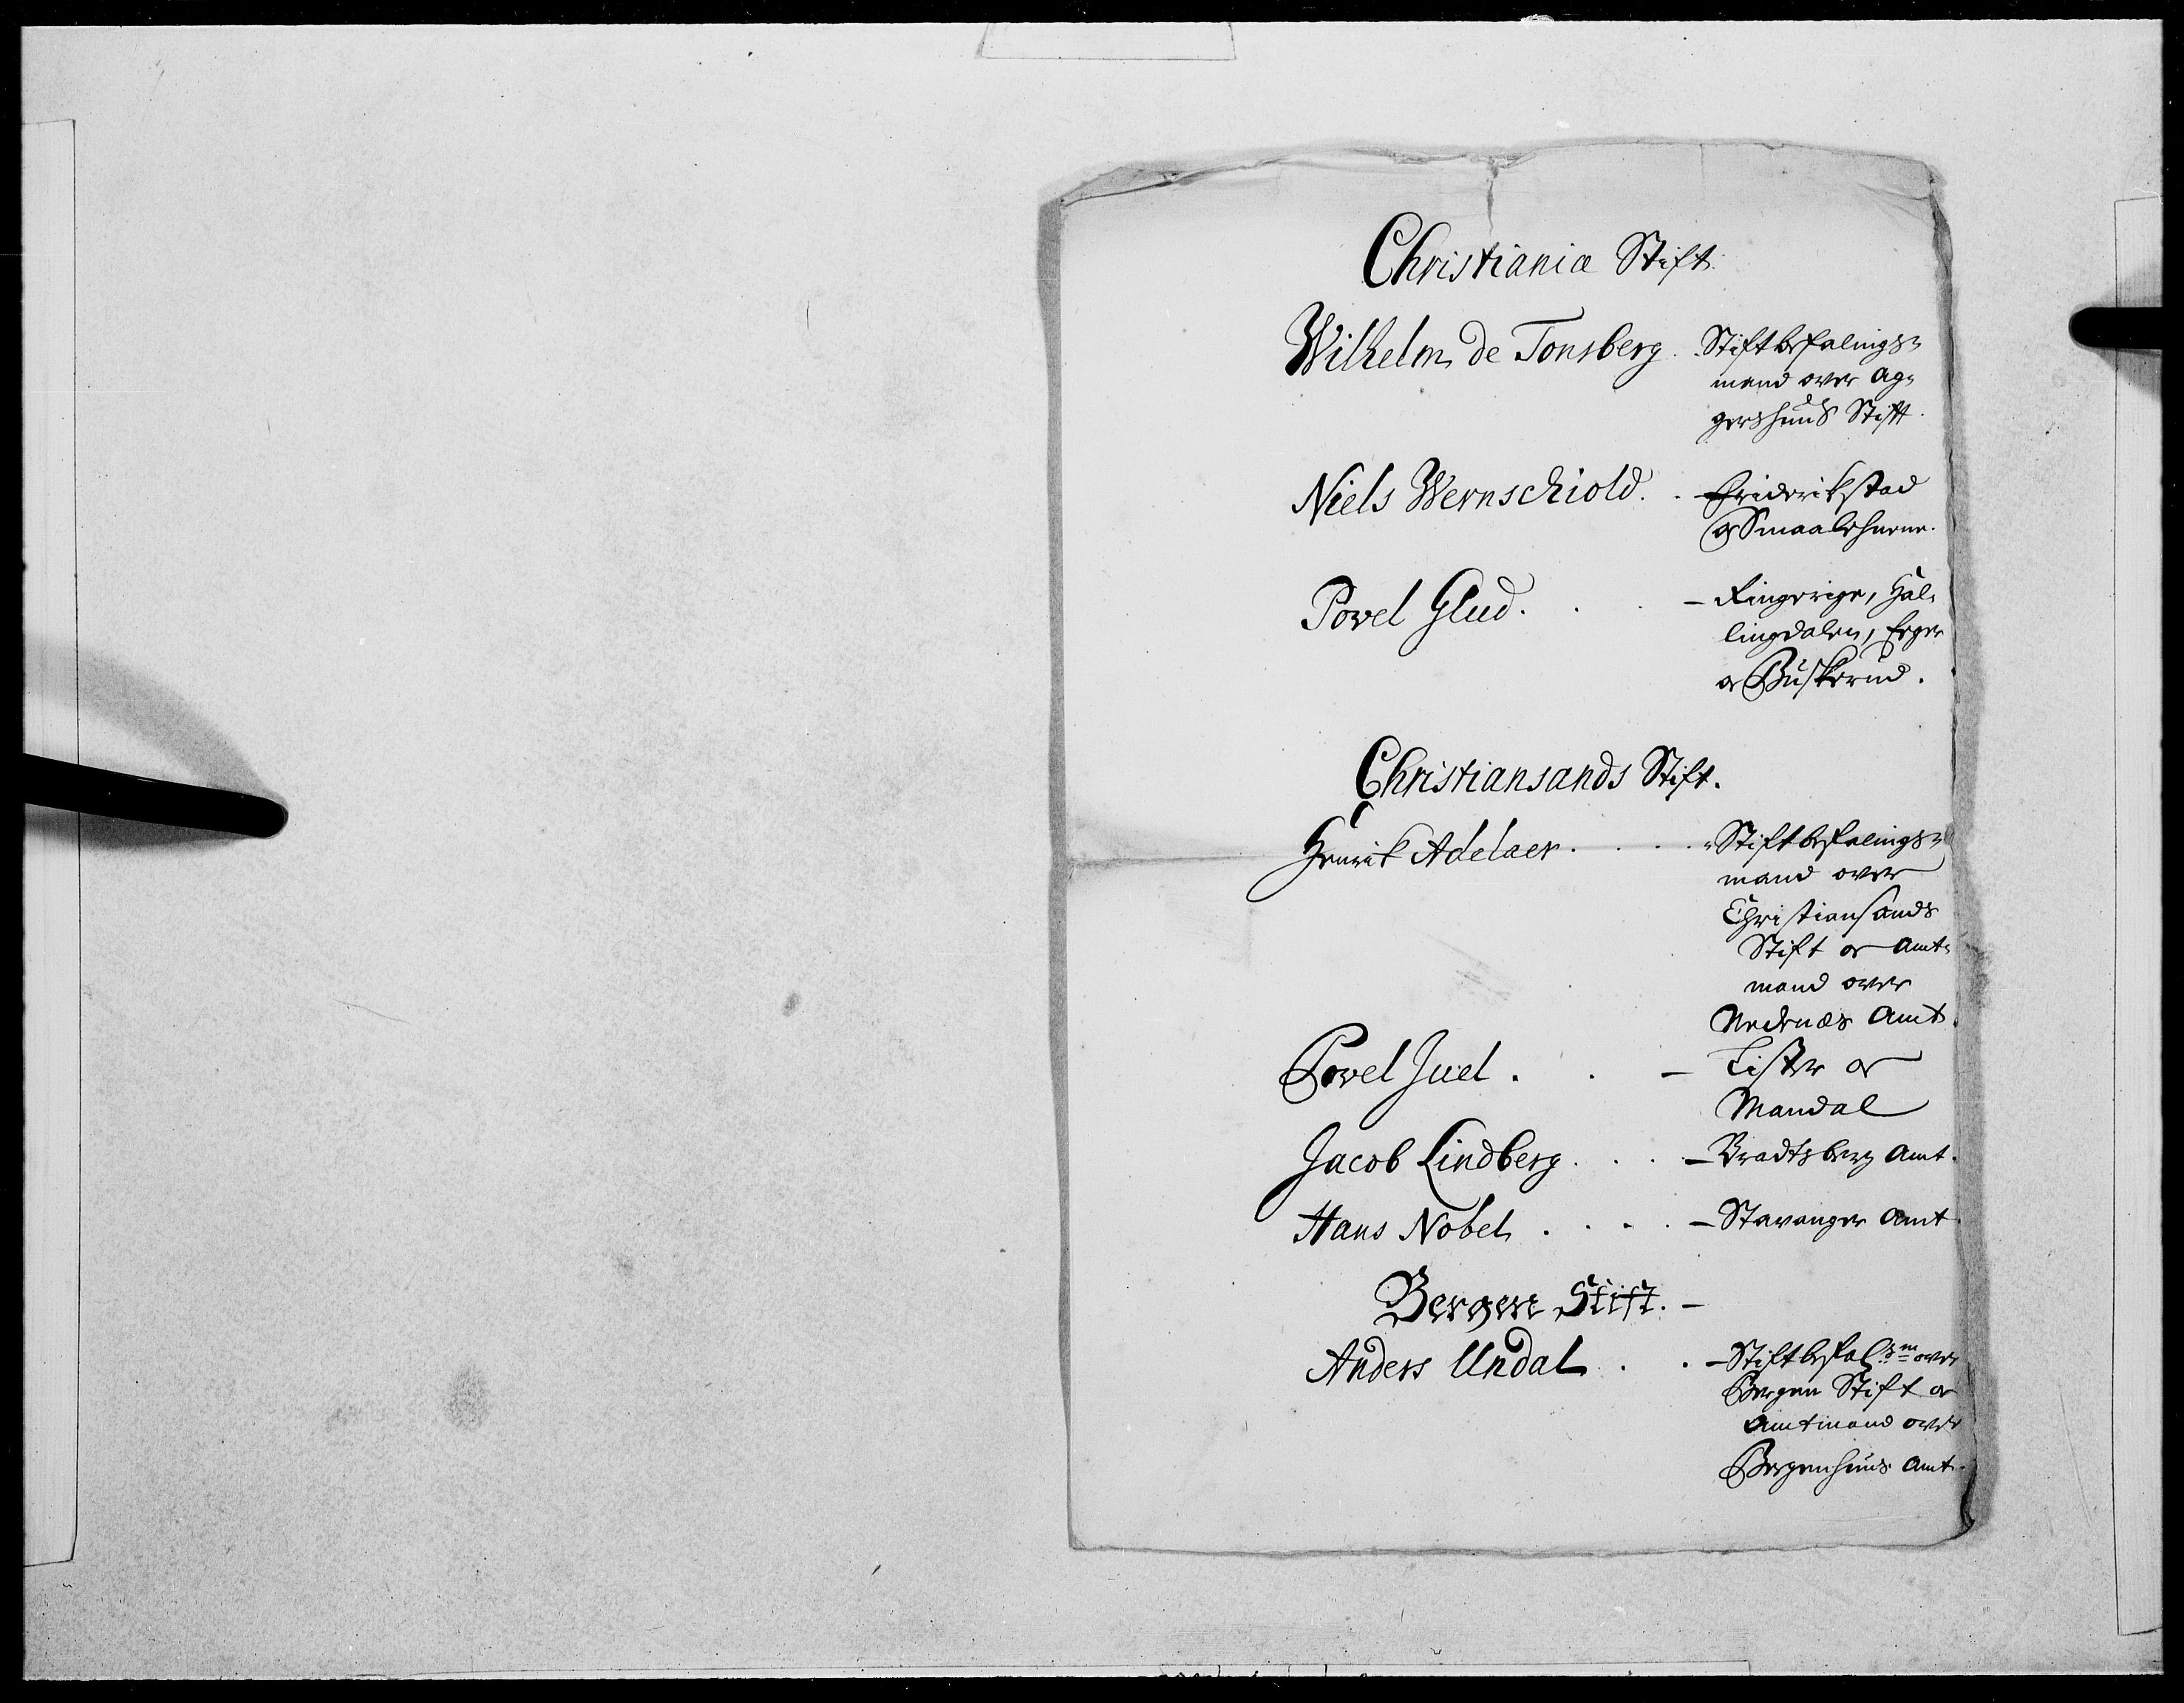 Christiania Stift.
Wilhelm de Tonsberg. Stiftbefalings-
mand over Ag-
gershuus Stift.
Niels Wernschiold. . - Friderikstad
og Smaalehnene.
Povel Glud. . . - Ringerige, Hal-
lingdalen, Eger
og Buskerud.
Christiansands Stift.
Henrik Adelaer. . . . Stiftbefalings-
mand over
Christiansands
Stift og Amt-
mand over
Nedenæs Amt.
Povel Juel. . - Lister og
Mandal
Jacob Lindberg. . . - Bradtsberg Amt.
Hans Nobel. . . . - Stavanger Amt
Bergen Stift. -
Anders Undal . . - Stiftbefal:s m over
Bergen Stift og
Amtmand over
Bergenhuus Amt.